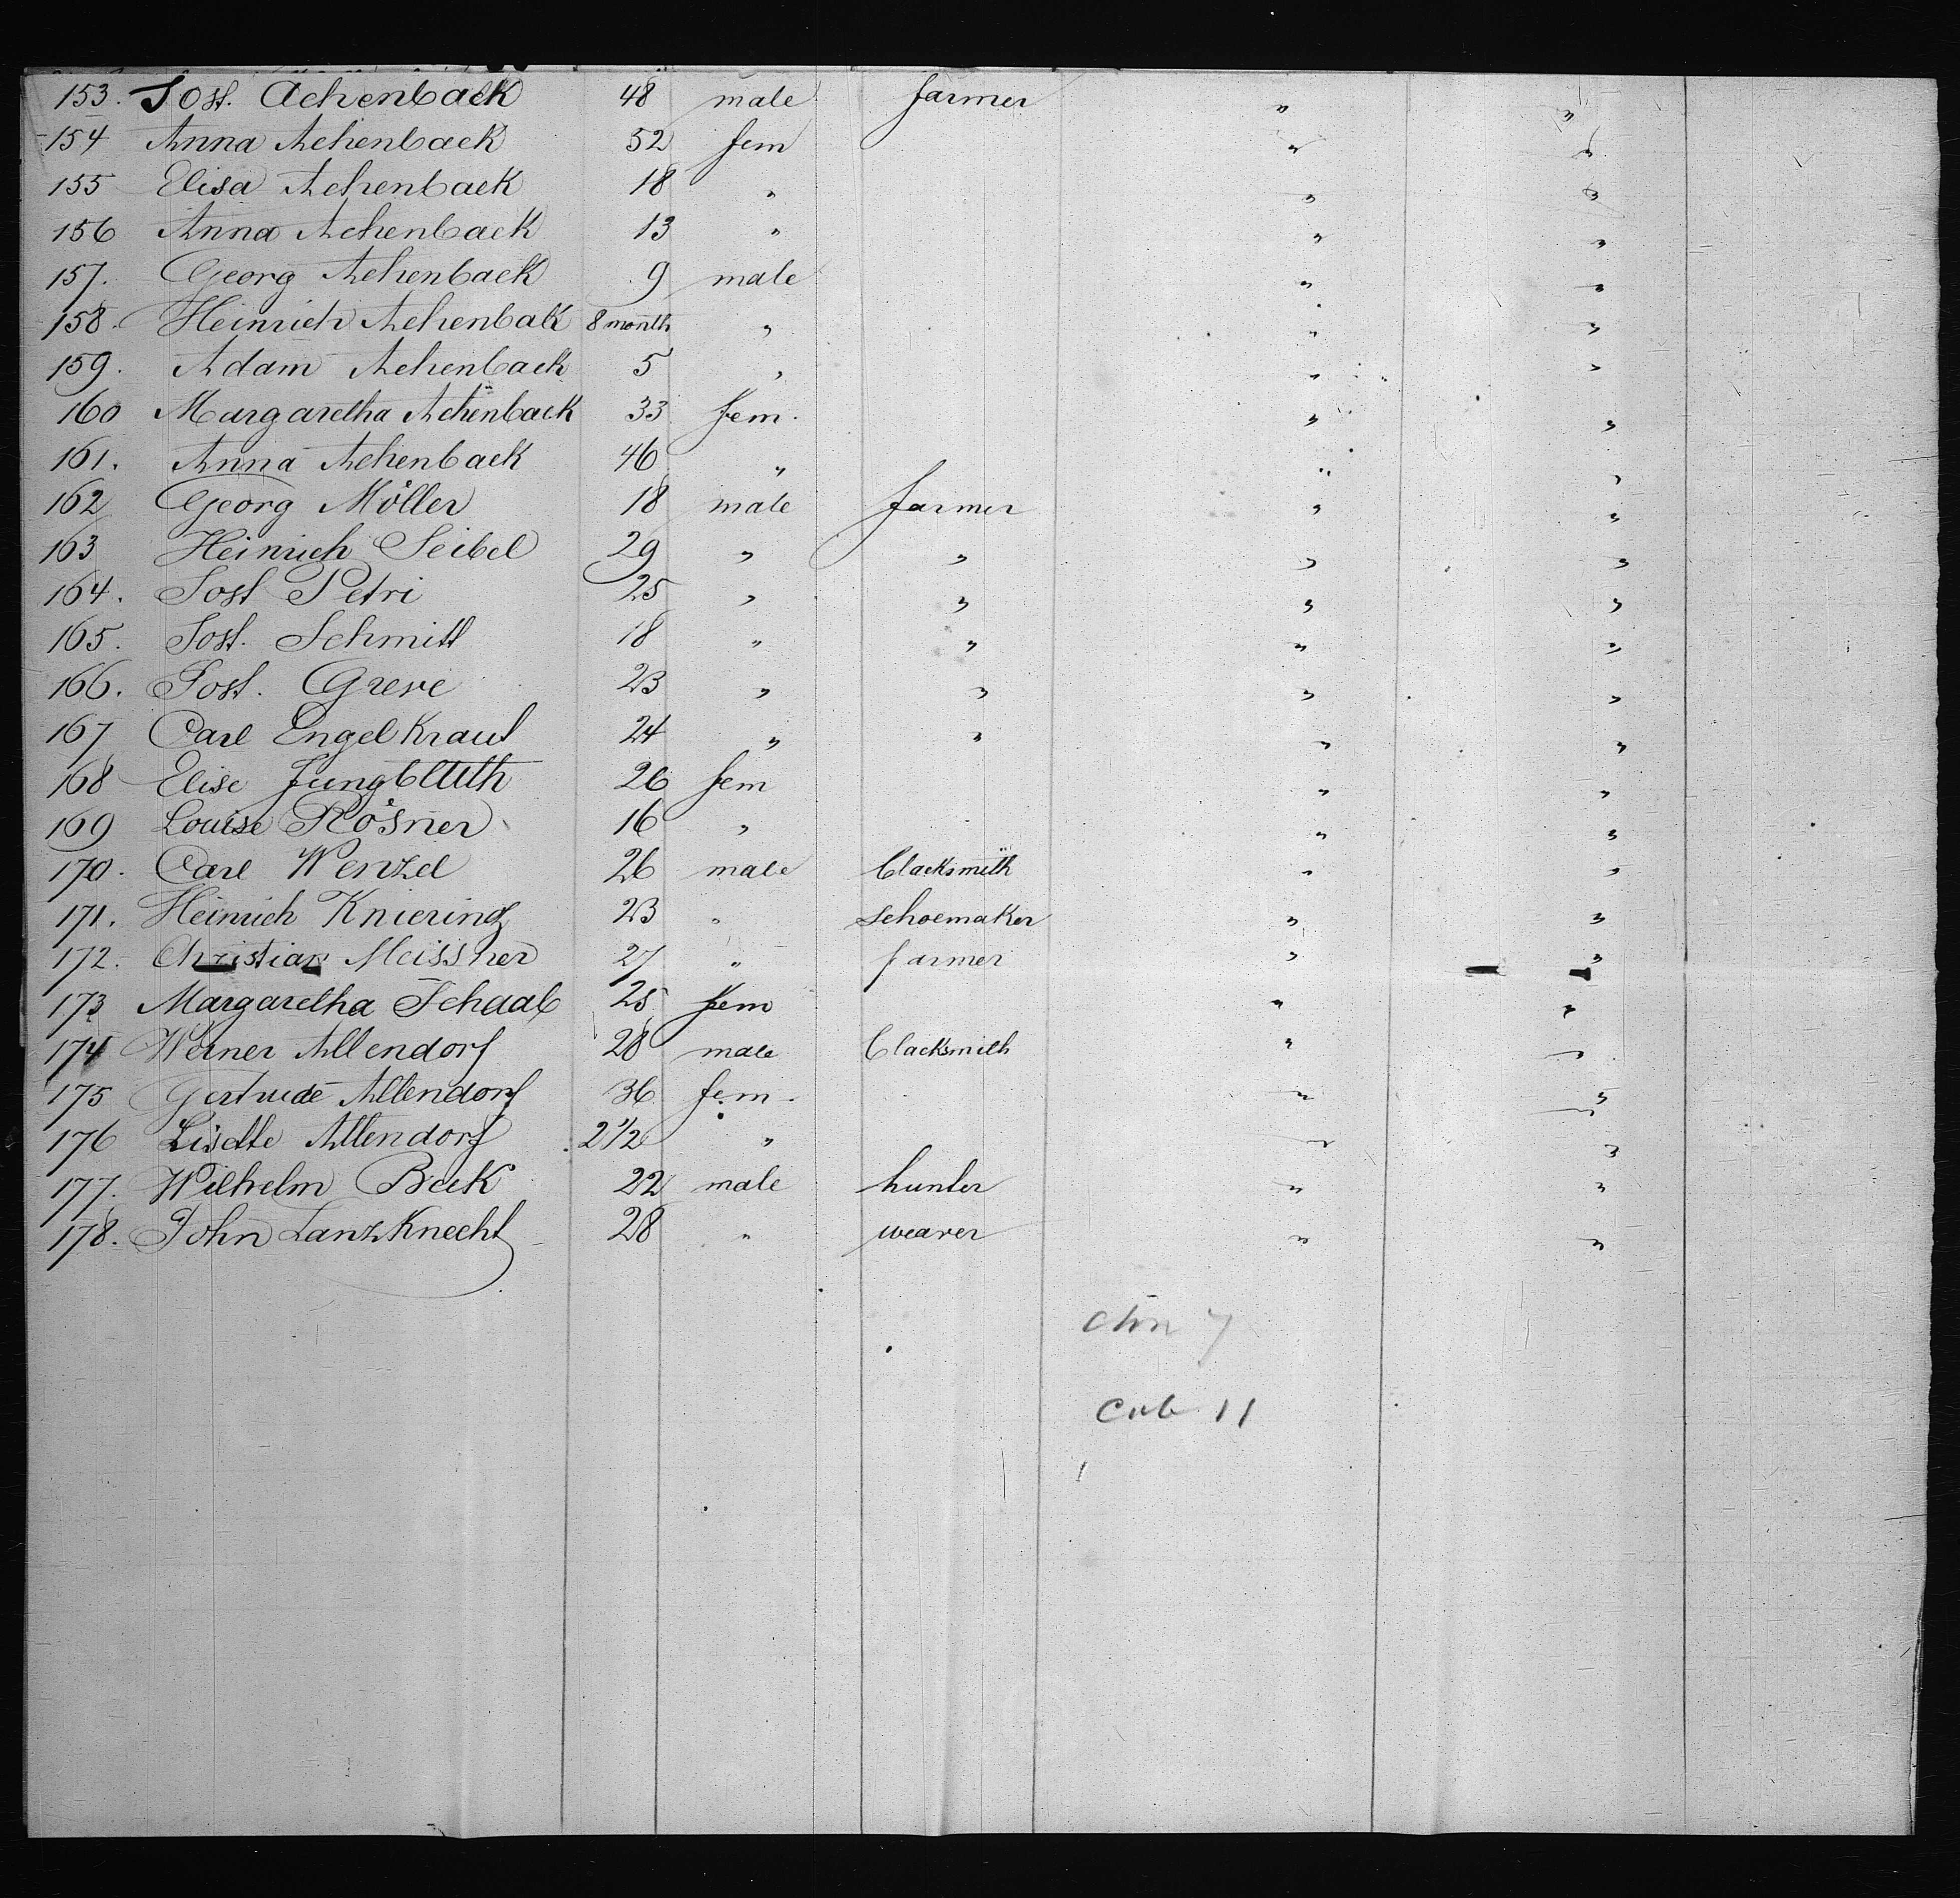 153. Jost. Achenback 48 male farmer " "
154 Anna Achenback 52 fem " "
155 Elisa Achenback 18 " " "
156 Anna Achenback 13 " " "
157. Georg Achenback 9 male " "
158. Heinrich Achenbak 8 month " " "
159. Adam Achenback 5 " " "
160 Margaretha Achenback 33 fem. " "
161. Anna Achenback 46 " " "
162 Georg Möller 18 male farmer " "
163 Heinrich Seibel 29 " " " "
164. Jost Petri 25 " " " "
165. Jost. Schmitt 18 " " " "
166. Jost. Greve 23 " " " "
167 Carl Engelkraut 24 " " " "
168 Elise Jungbluth 26 fem " "
169 Louise Rösner 16 " " "
170. Carl Wenzel 26 male blacksmith " "
171. Heinrich Kniering 23 " schoemaker " "
172. Christian Meissner 27 " farmer " "
173 Margaretha Schaab 25 fem " "
174 Werner Allendorf 28 male blacksmith " "
175 Gertrude Allendorf 36 fem. " "
176 Lisette Allendorf 2 1/2 " " "
177. Wilhelm Beck 22 male hunter " "
178. John Lanzknecht 28 " weaver " "
11